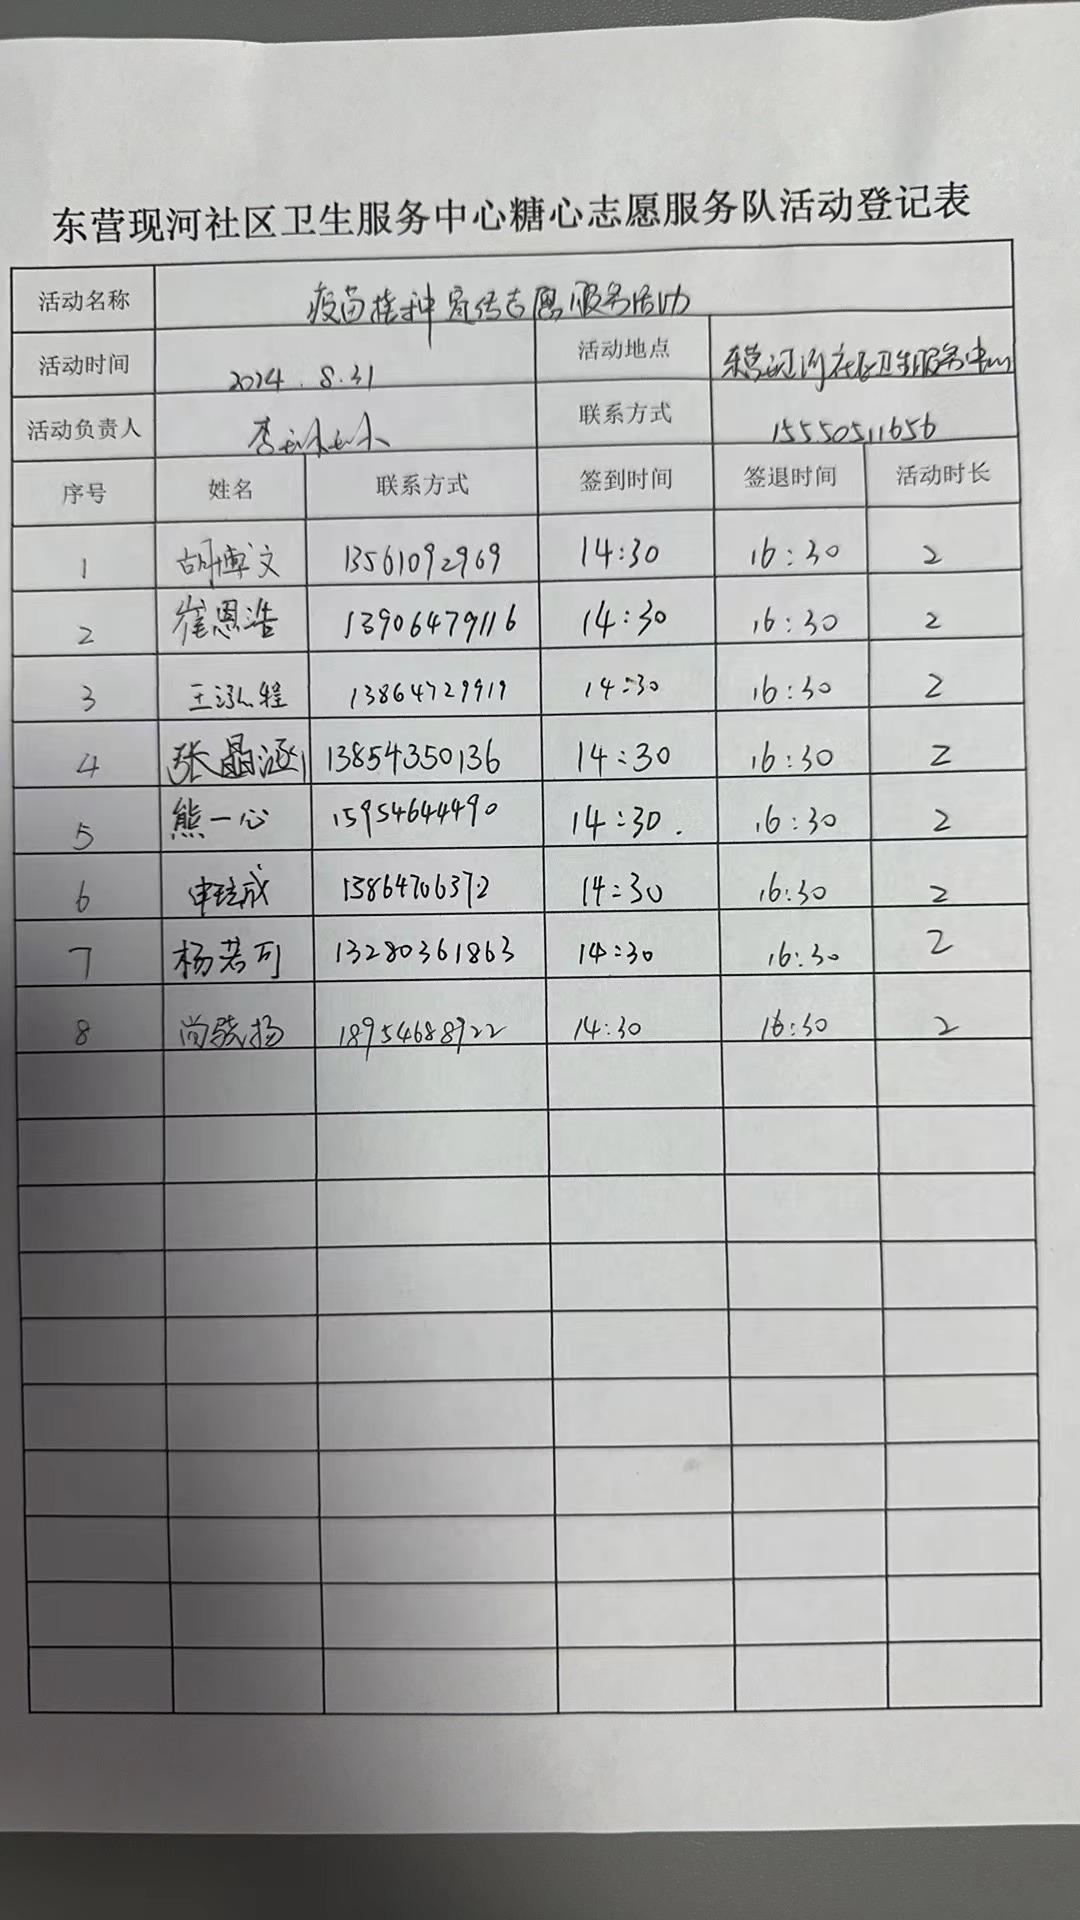 东营现河社区卫生服务中心糖心志愿服务队活动登记表
活动名称 疫苗接种宣传志愿服务活动
活动时间 2024.8.31 活动地点 东营现河社区卫生服务中心
活动负责人 李 联系方式 15550511656
序号 姓名 联系方式 签到时间 签退时间 活动时长
1 胡博文 13561092969 14:30 16:30 2
2 崔恩浩 13906479116 14:30 16:30 2
3 王泓程 13864729919 14:30 16:30 2
4 张晶涵 13854350136 14:30 16:30 2
5 熊一心 15954644490 14:30. 16:30 2
6 申 成 13864706372 14:30 16:30 2
7 杨若可 13280361863 14:30 16:30 2
8 尚骁扬 18954688922 14:30 16:30 2